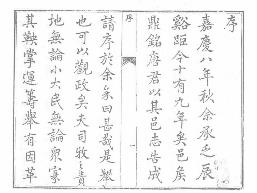 序
嘉慶八年秋余承乏辰
谿距今十有九年矣邑矦
鼎銘唐君以其邑志告成
請序於余余曰甚哉是舉
也可以觀政矣夫司牧之責
地無論小大民無論衆寡
其鞅掌運籌舉有因革
序